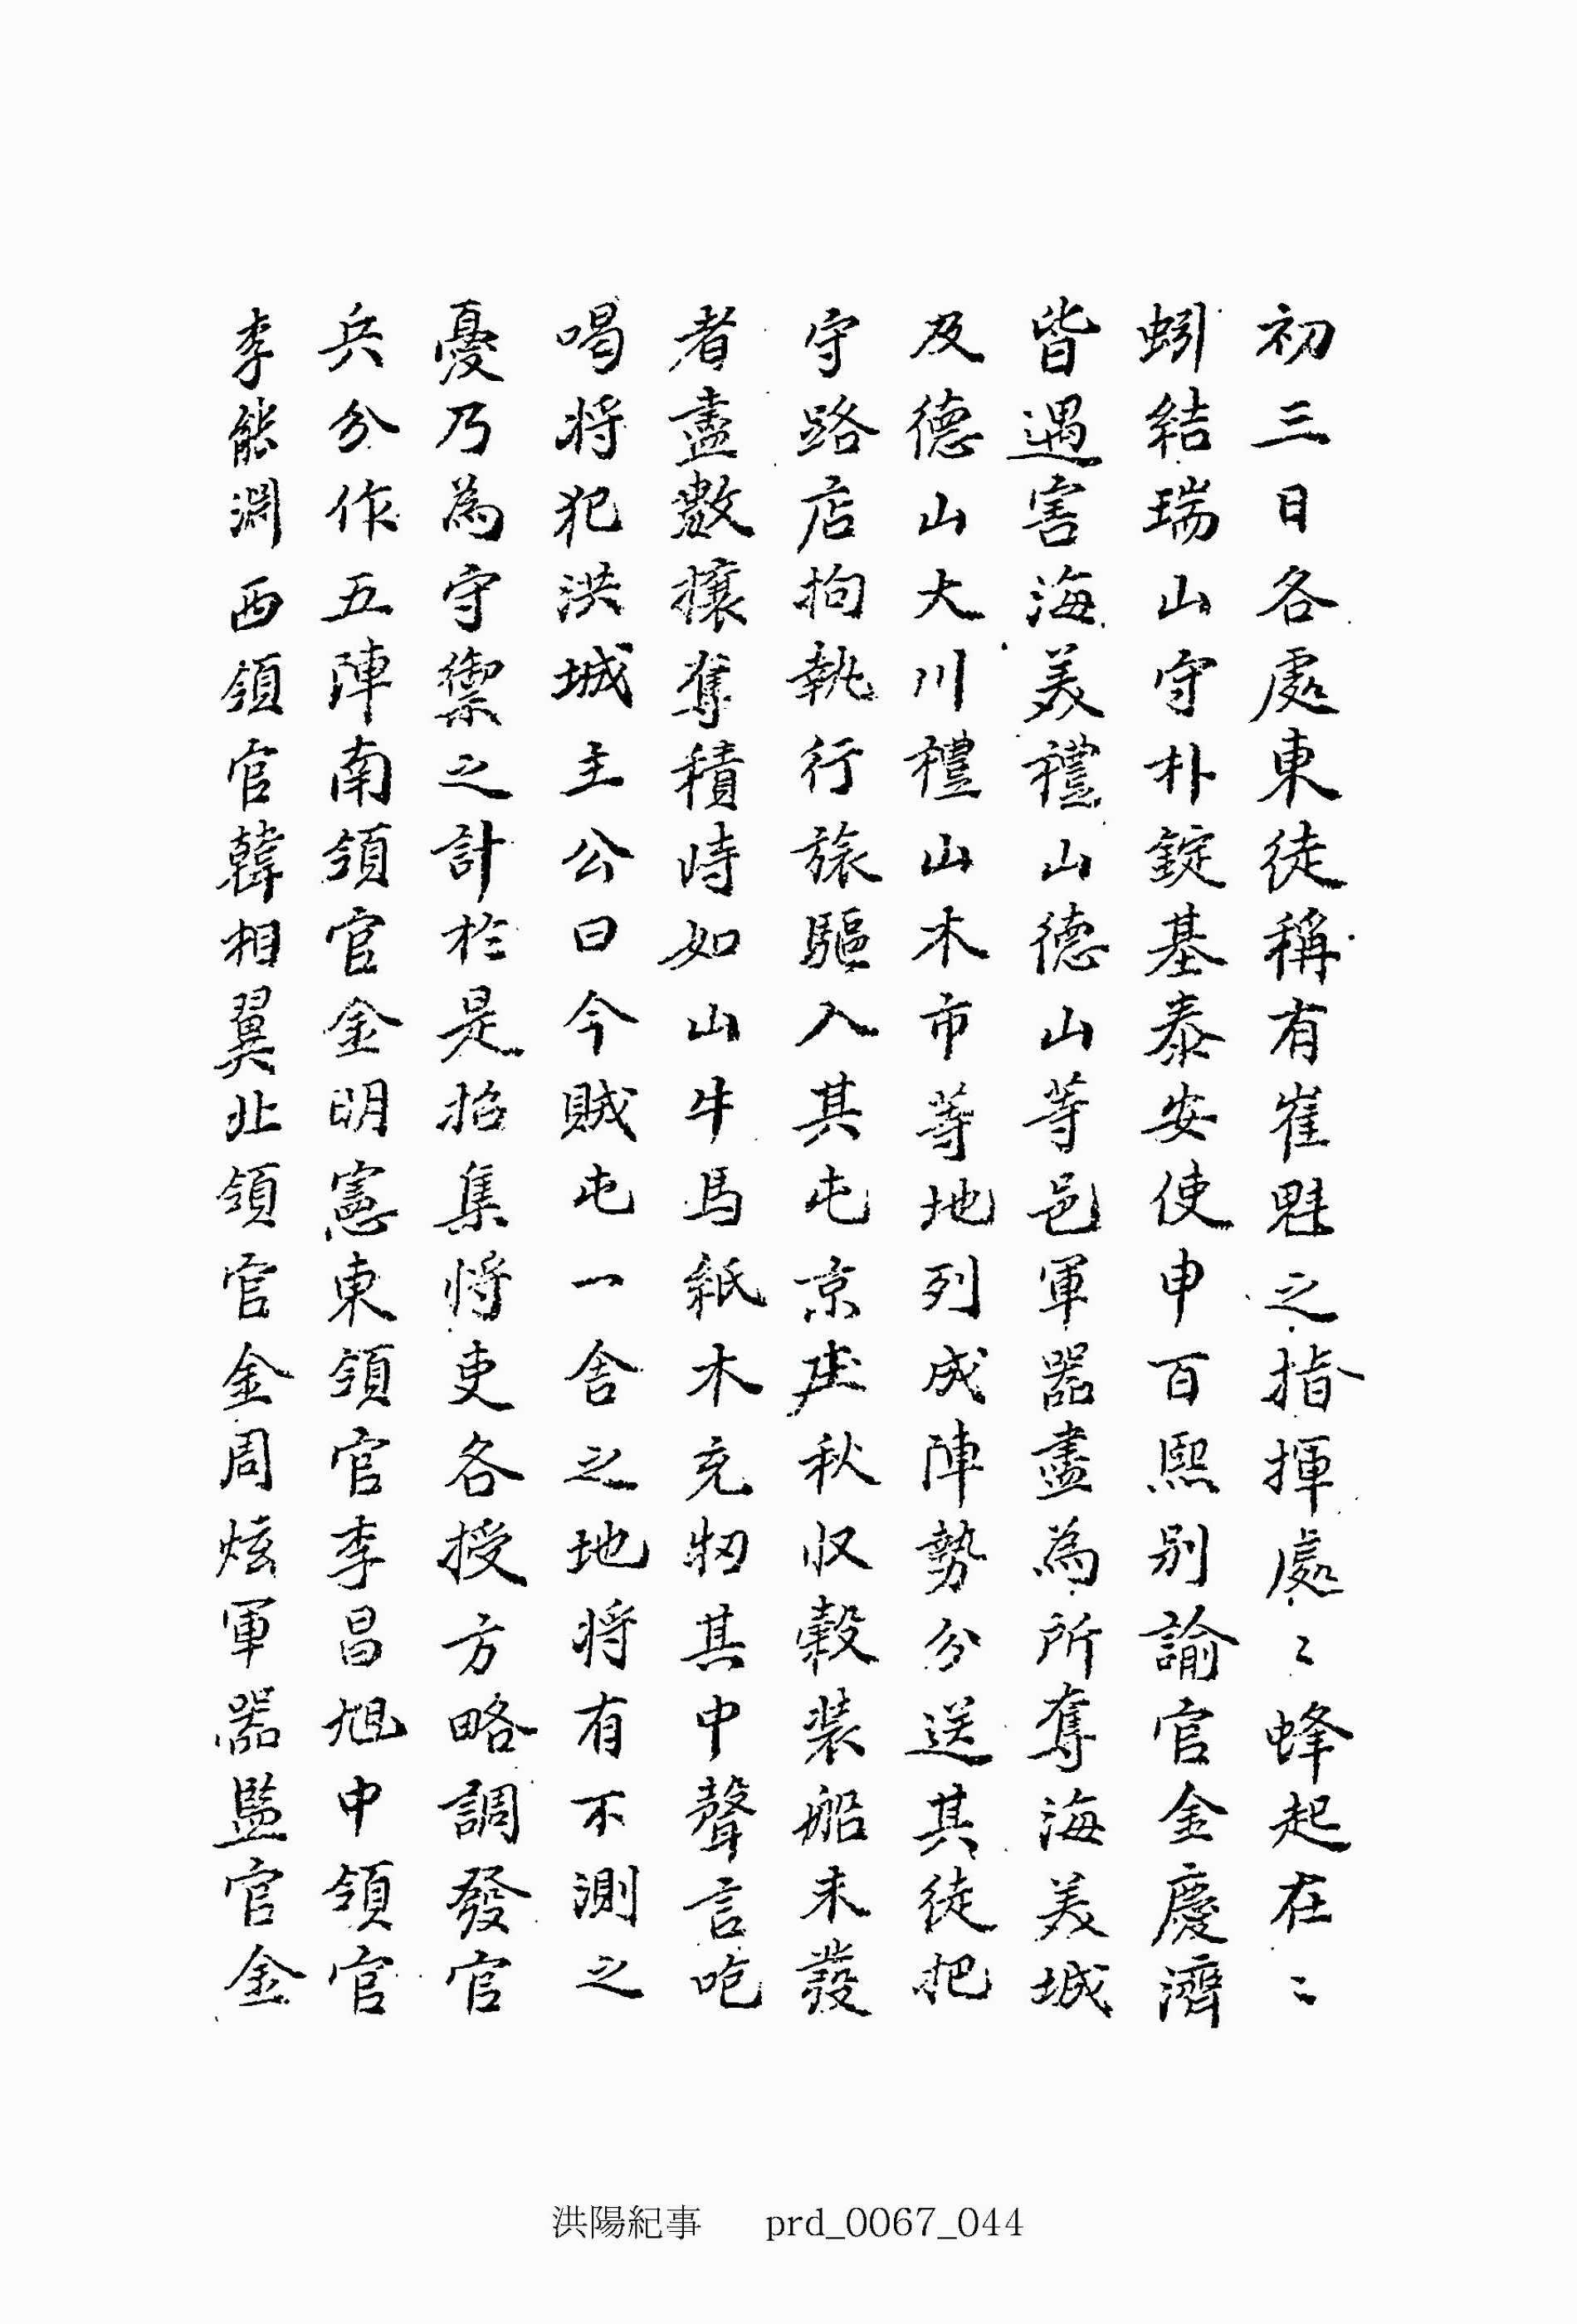 初三日各處東徒稱有崔魁之指揮處〻蜂起在〻
蚓結瑞山守朴錠基泰安使申百熙別諭官金慶濟
皆遇害海美禮山德山等邑軍器盡為所奪海美城
及德山大川禮山木市等地列成陣勢分送其徒把
守路店拘執行旅驅入其屯京庄秋收穀裝船未發
者盡數攘奪積峙如山牛馬紙木充牣其中聲言吃
喝將犯洪城主公曰今賊屯一舍之地將有不測之
憂乃為守禦之計於是招集將吏各授方略調發官
兵分作五陣南領官金明憲東領官李昌旭中領官
李能淵西領官韓相翼北領官金周炫軍器監官金
洪陽紀事 prd_0067_044